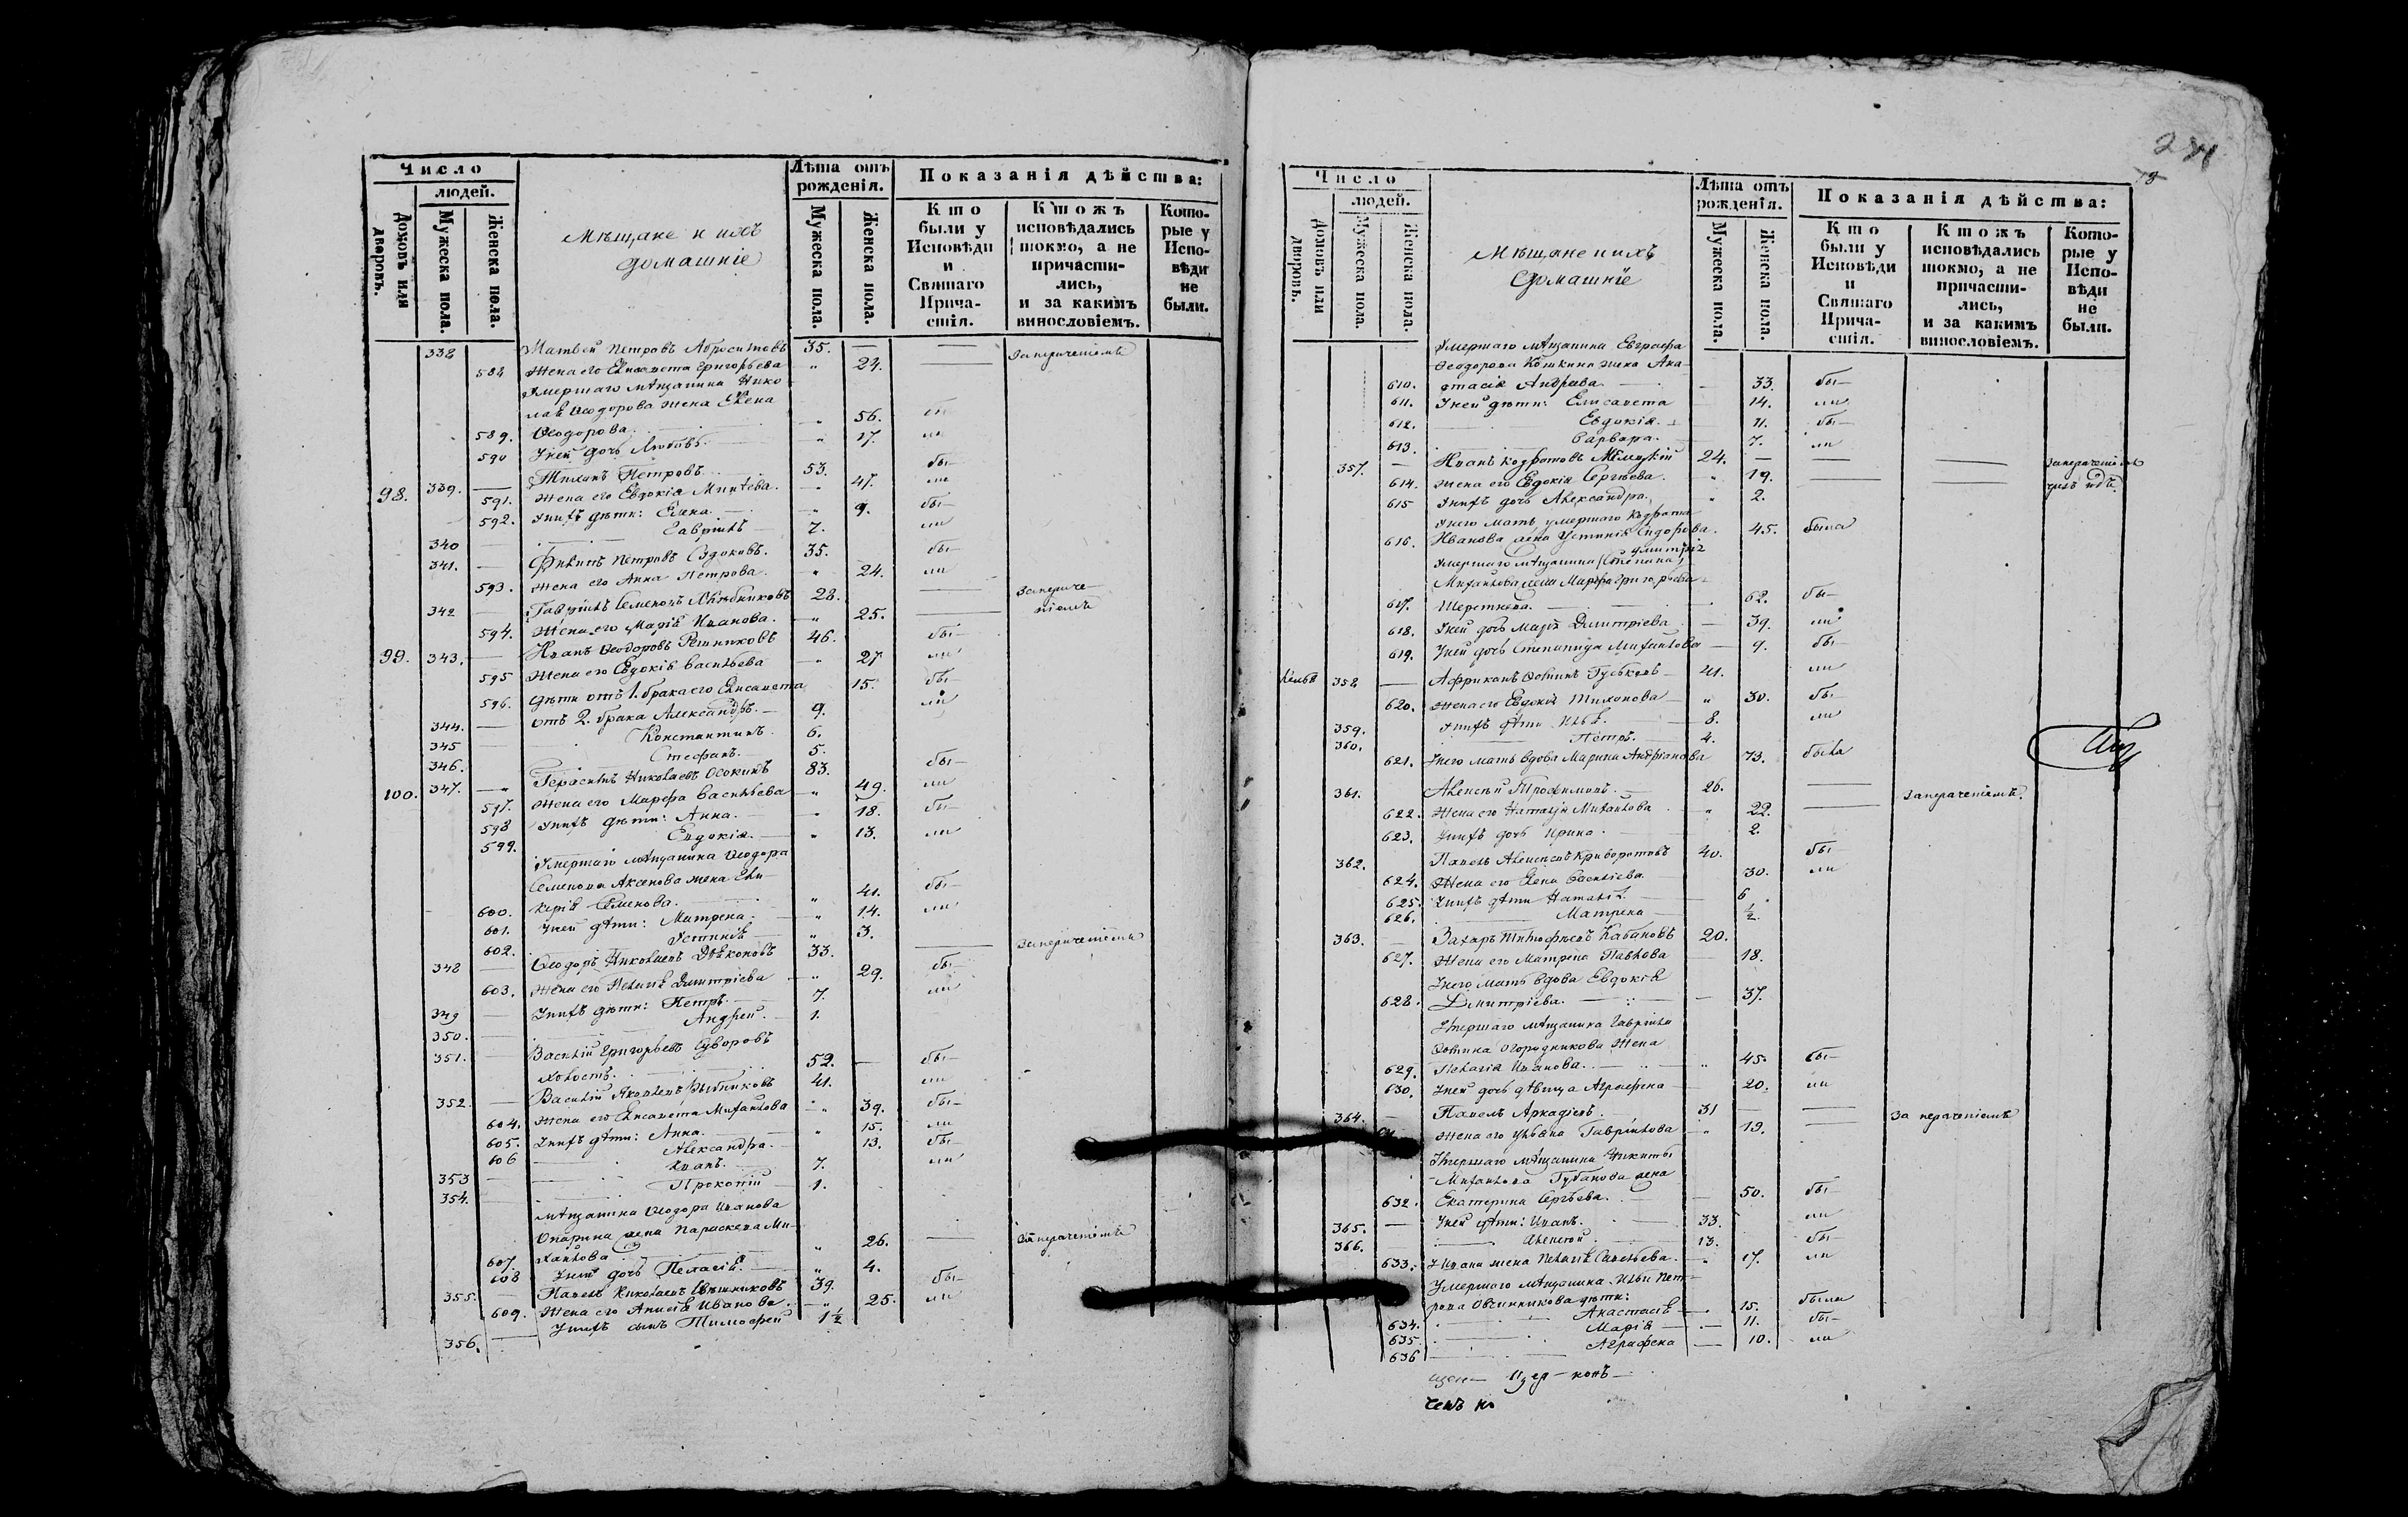 Число
людей.
Домовъ или дворовъ.
Мужеска пола.
Женска пола.
Мѣщане и ихъ
домашніе
Лѣта отъ рожденія.
Мужеска пола.
Женска пола.
Показанія дѣйства:
Кто были у Исповѣди и Святаго Причастія.
Ктожъ исповѣдались токмо, а не причастились, и за какимъ винословіемъ.
Которые у Исповѣди не были.
338 Матвей Петровъ 35. — —
588 Жена его Елисавета Григорьева " 24. —
Умершаго мѣщанина Нико
лая Ѳеодорова жена Елена
589. Ѳеодорова. " 56. бы—
590 У ней дочь Любовь. " 17. ли
98. 339. — Тихонъ Петровъ 53. бы—
591. Жена его Евдокія " 47. ли
592. У нихъ дѣти: Елена. " 9. бы—
340 — Гавріилъ 7. ли
341. — Филипъ Петровъ 35. бы—
593. Жена его Анна Петрова. " 24. ли
342 — Гавріилъ Семеновъ Хлѣбниковъ 28. —
594. Жена его Марія Иванова. " 25. —
99. 343. — Иванъ Ѳеодоровъ Решниковъ 46. бы—
595 Жена его Евдокія Васильева " 27 ли
596. Дѣти отъ 1. брака его Елисавета 15. бы—
344. — отъ 2. брака Александръ. 9. ли
345 — Константинъ. 6.
346. — Стефанъ. 5.
100. 347. — Герасимъ Николаевъ Осокинъ 83. бы—
597. Жена его Марфа Васильева " 49. ли
598 У нихъ дѣти: Анна. " 18. бы—
599. Евдокія. " 13. ли
Умершаго мѣщанина Ѳеодора
Семенова Аксенова жена Гли—
600. керія Семенова. " 41. бы—
601. У ней дѣти: Матрена. " 14. ли
602. Устинія " 3.
348 — Ѳеодоръ Николаевъ Дьяконовъ 33. —
603. Жена его Пелагія Димитріева " 29. бы
349 — У нихъ дѣти: Петръ. 7. ли
350. — Андрей. 1.
351. — Василій Григорьевъ Суворовъ
холостъ. 52. — бы—
352. — Василій Яковлевъ 41. ли
604. Жена его Елисавета Михайлова " 39. бы—
605. У нихъ дѣти: Анна. " 15. ли
606 — Александра. 13. бы—
353 — Иванъ. 7. ли
354. — Прокопій 1.
мѣщанина Ѳеодора Иванова
Опарина жена Параскева Ми—
607. хайлова " 26. —
608 У ней дочь Пелагія. " 4.
355. — Павелъ Николаевъ 39. бы—
609. Жена его Анисія Иванова. " 25. ли
356. — У нихъ сынъ Тимофей 1½
Число
людей.
Домовъ или дворовъ.
Мужеска пола.
Женска пола.
Мѣщане и ихъ
домашніе
Лѣта отъ рожденія.
Мужеска пола.
Женска пола.
Показанія дѣйства:
Кто были у Исповѣди и Святаго Причастія.
Ктожъ исповѣдались токмо, а не причастились, и за какимъ винословіемъ.
Которые у Исповѣди не были.
Умершаго мѣщанина Евграфа
Ѳеодорова Кошкина жена Ана—
610. стасія Андреева. — 33. бы—
611. У ней дѣти: Елисавета 14. ли
612. — Евдокія. 11. бы—
613. Варвара. 7. ли
357. — Иванъ 24. — — —
614. Жена его Евдокія Сергѣева. " 19. —
615 У нихъ дочь Александра. " 2.
У него мать умершаго
616. Иванова жена Устинія Сидорова. 45. была
Умершаго мѣщанина
Михайлова жена Марфа Григорьева
617. 62. бы—
618. У ней дочь Марія Димитріева — 39. ли
619. У ней дочь Степанида Михайлова — 9. бы—
358 — Африканъ Гуськовъ 41. ли
620. Жена его Евдокія Тихонова " 30. бы
359. У нихъ дѣти Илья. 8. ли
360. Петръ. 4.
621. У него мать вдова Марина Андріанова 73. была
361. Алексѣй Трофимовъ. 26. — За нераченіемъ.
622. Жена его Наталья Михайлова " 22. —
623. У нихъ дочь Ирина. 2.
362. Павелъ Алексѣевъ Криворотовъ 40. бы—
624. Жена его Елена Васильева 30. ли
625. У нихъ дѣти Наталія 6
626. Матрена ½.
363. — Захаръ Тимофѣевъ Кабановъ 20.
627. Жена его Матрена Павлова 18.
У него мать вдова Евдокія
628. Димитріева. — 37.
Умершаго мѣщанина Гавріила
Огородникова жена
629. Пелагія Иванова. " 45. бы—
630. У ней дочь дѣвица Аграфена 20. ли
364. — Павелъ Аркадіевъ. 31 — — За нераченіемъ
Жена его Ульяна Гавріилова " 19. —
Умершаго мѣщанина Никиты
Михайлова Губанова жена
632. Екатерина Сергѣева. — 50. бы—
365. — У ней дѣти: Иванъ. 33. ли
366. Алексѣй 13. бы—
633. У Ивана жена Пелагія Савельева. " 17. ли
Умершаго мѣщанина Ильи Пет—
рова Овсянникова дѣти:
634. Анастасія — 15. были
635. Марія — 11. бы—
636 Аграфена — 10. ли